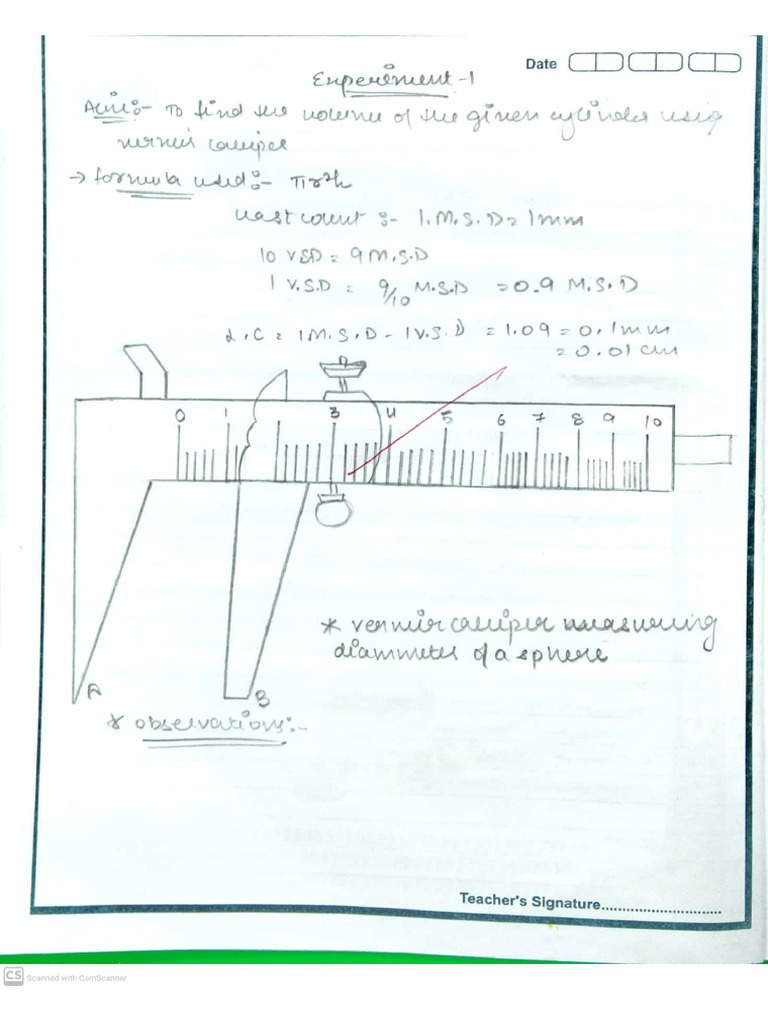 Date
Experiment-1
Aim:- To find the volume of the given cylinder using
vernier caliper
→ formula used:- πr²h
Least count :- 1.M.S.D = 1mm
10 VSD = 9 M.S.D
1 V.S.D = 9/10 M.S.D = 0.9 M.S.D
L.C = 1M.S.D - 1V.S.D = 1.09 = 0.1mm
= 0.01 cm
0 1 3 4 5 6 7 8 9 10
* vernier caliper measuring
diammeter of a sphere
A B
* observations:-
Teacher's Signature..............................
CS Scanned with CamScanner